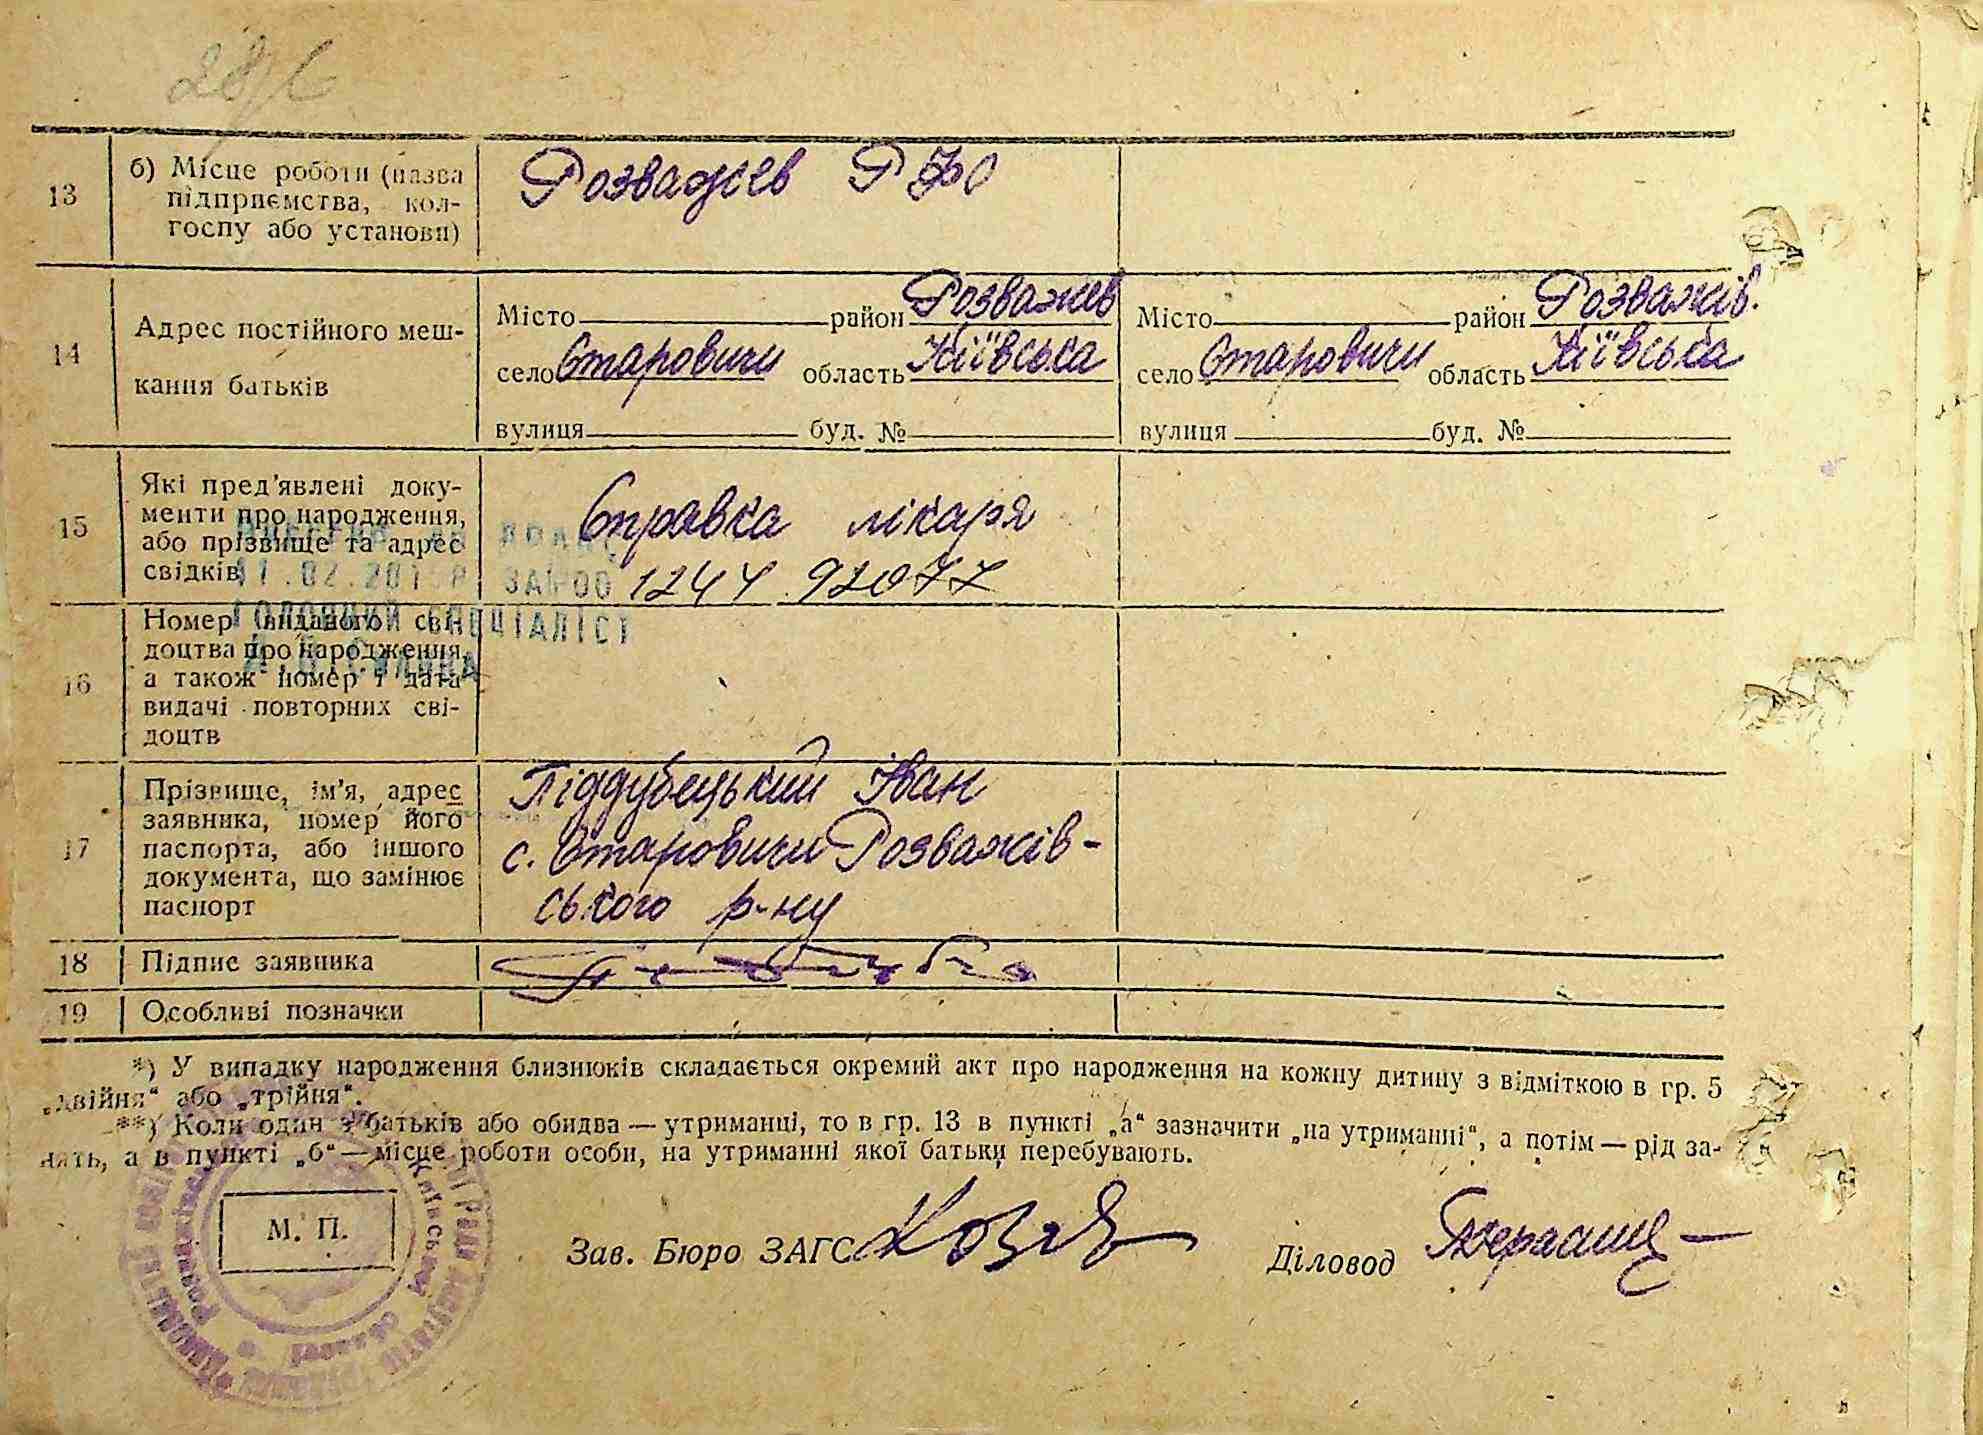 28/6
13
б) Місце роботи (назва
підприємства, кол-
госпу або установи)
Розважев РФО
14
Адрес постійного меш-
кання батьків
Місто район Розважев
село Старовичи область Київська
вулиця буд. №
Місто район Розважів.
село Старовичи область Київська
вулиця буд. №
15
Які пред'явлені доку-
менти про народження,
або прізвище та адрес
свідків
Справка лікаря
1244 92077
16
Номер виданого сві-
доцтва про народження,
а також номер і дата
видачі повторних сві-
доцтв
ГОЛОВНИЙ СПЕЦІАЛІСТ
17
Прізвище, ім'я, адрес
заявника, номер його
паспорта, або іншого
документа, що замінює
паспорт
Піддубецький Іван
с. Старовичи Розважів-
ського р-ну
18
Підпис заявника
19
Особливі позначки
*) У випадку народження близнюків складається окремий акт про народження на кожну дитину з відміткою в гр. 5
„двійня“ або „трійня“.
**) Коли один з батьків або обидва — утриманці, то в гр. 13 в пункті „а“ зазначити „на утриманні“, а потім — рід за-
нять, а в пункті „б“ — місце роботи особи, на утриманні якої батьки перебувають.
М. П.
Зав. Бюро ЗАГС
Діловод